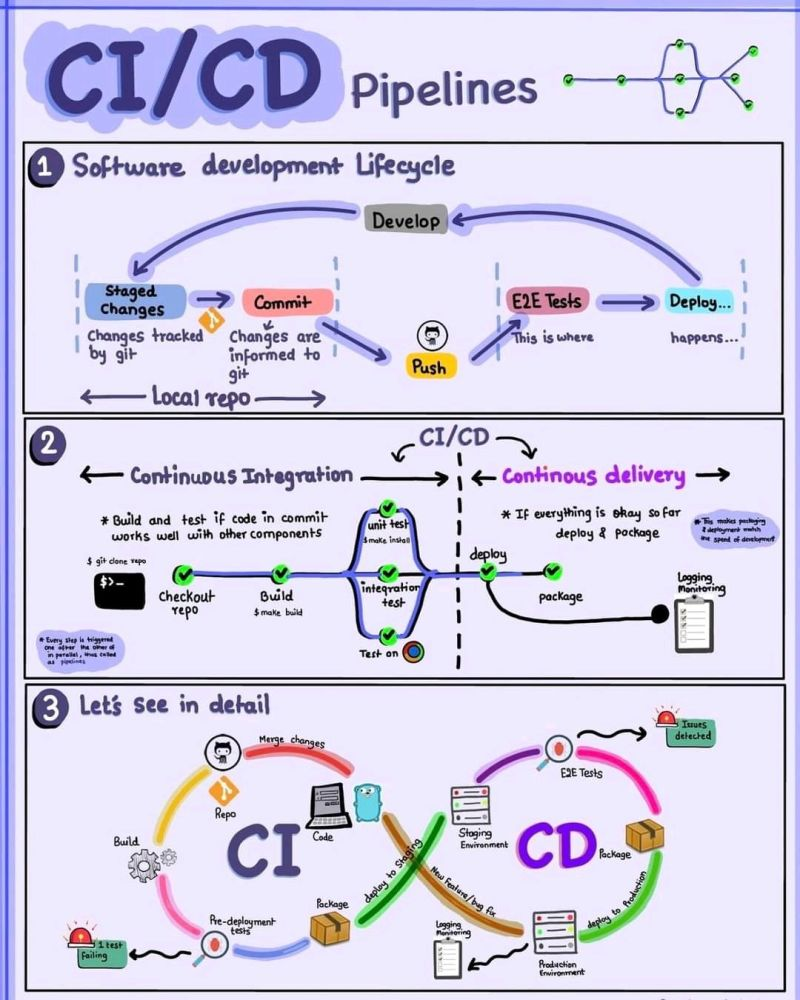 CI/CD Pipelines
1 Software development Lifecycle
Develop
Staged
Changes
Commit
E2E Tests
Deploy...
Changes tracked
by git
Changes are
informed to
git
This is where
happens...
Push
Local repo
2
CI/CD
Continuous Integration
Continous delivery
* Build and test if code in commit
works well with other components
* If everything is okay so far
deploy & package
* This makes packaging
& deployment match
the speed of development
$ git clone repo
$>-
Checkout
repo
Build
$ make build
unit test
$ make install
integration
test
Test on
deploy
package
Logging
Monitoring
* Every step is triggered
one after the other or
in parallel, thus called
as pipelines
3 Let's see in detail
Merge changes
Repo
Code
Build
CI
Pre-deployment
tests
1 test
Failing
Package
deploy to Staging
New feature/bug fix
Staging
Environment
E2E Tests
Issues
detected
CD
Package
deploy to Production
Production
Environment
Logging
Monitoring